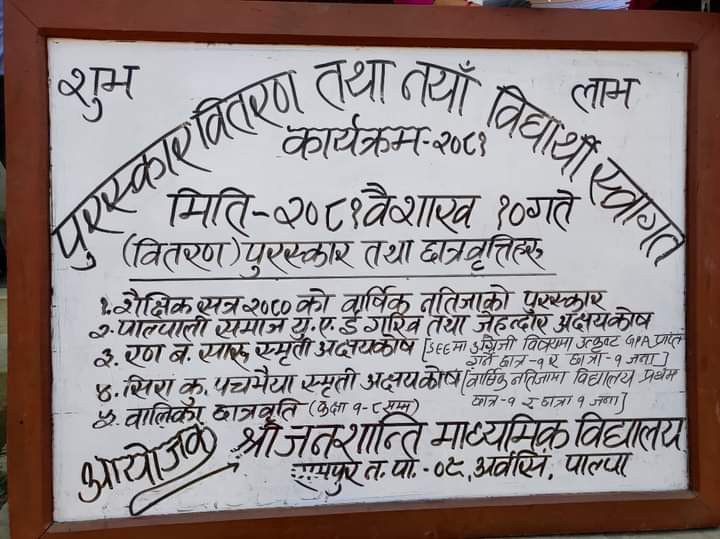 शुभ
लाभ
पुरस्कार वितरण तथा नयाँ विद्यार्थी स्वागत
कार्यक्रम-२०८१
मिति-२०८१ वैशाख १०गते
(वितरण) पुरस्कार तथा छात्रवृत्तिहरु
१. शैक्षिक सत्र २०८० को वार्षिक नतिजाको पुरस्कार
२. पाल्पाली समाज यु.ए.ई गरिव तथा जेहन्दार अक्षयकोष
३. रण ब. सारु स्मृती अक्षयकोष [SEEमा अंग्रेजी विषयमा उत्कृष्ट GPA प्राप्त
गर्ने छात्र-१ र छात्रा-१ जना]
४. सिरा कु. पचभैया स्मृती अक्षयकोष [वार्षिक नतिजामा विद्यालय प्रथम
छात्र-१ र छात्रा १ जना]
५. वालिका छात्रवृति (कक्षा १-८ सम्म)
आयोजक
श्री जनशान्ति माध्यमिक विद्यालय
रामपुर न.पा.-०९, अर्वसि, पाल्पा